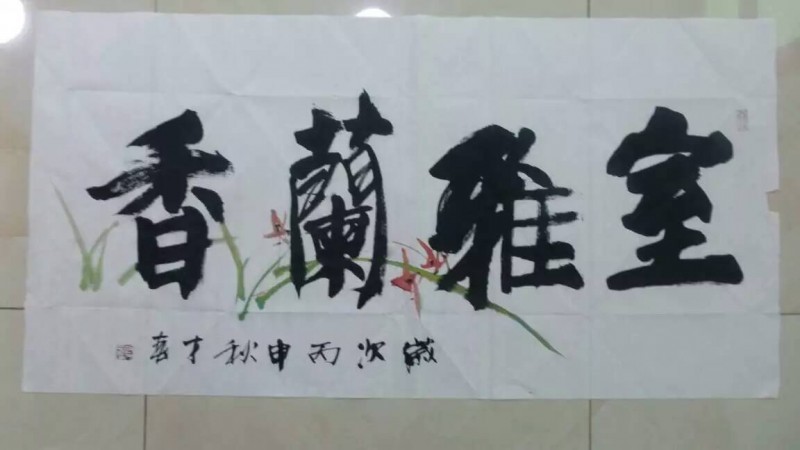 室雅蘭香
歲次丙申秋才